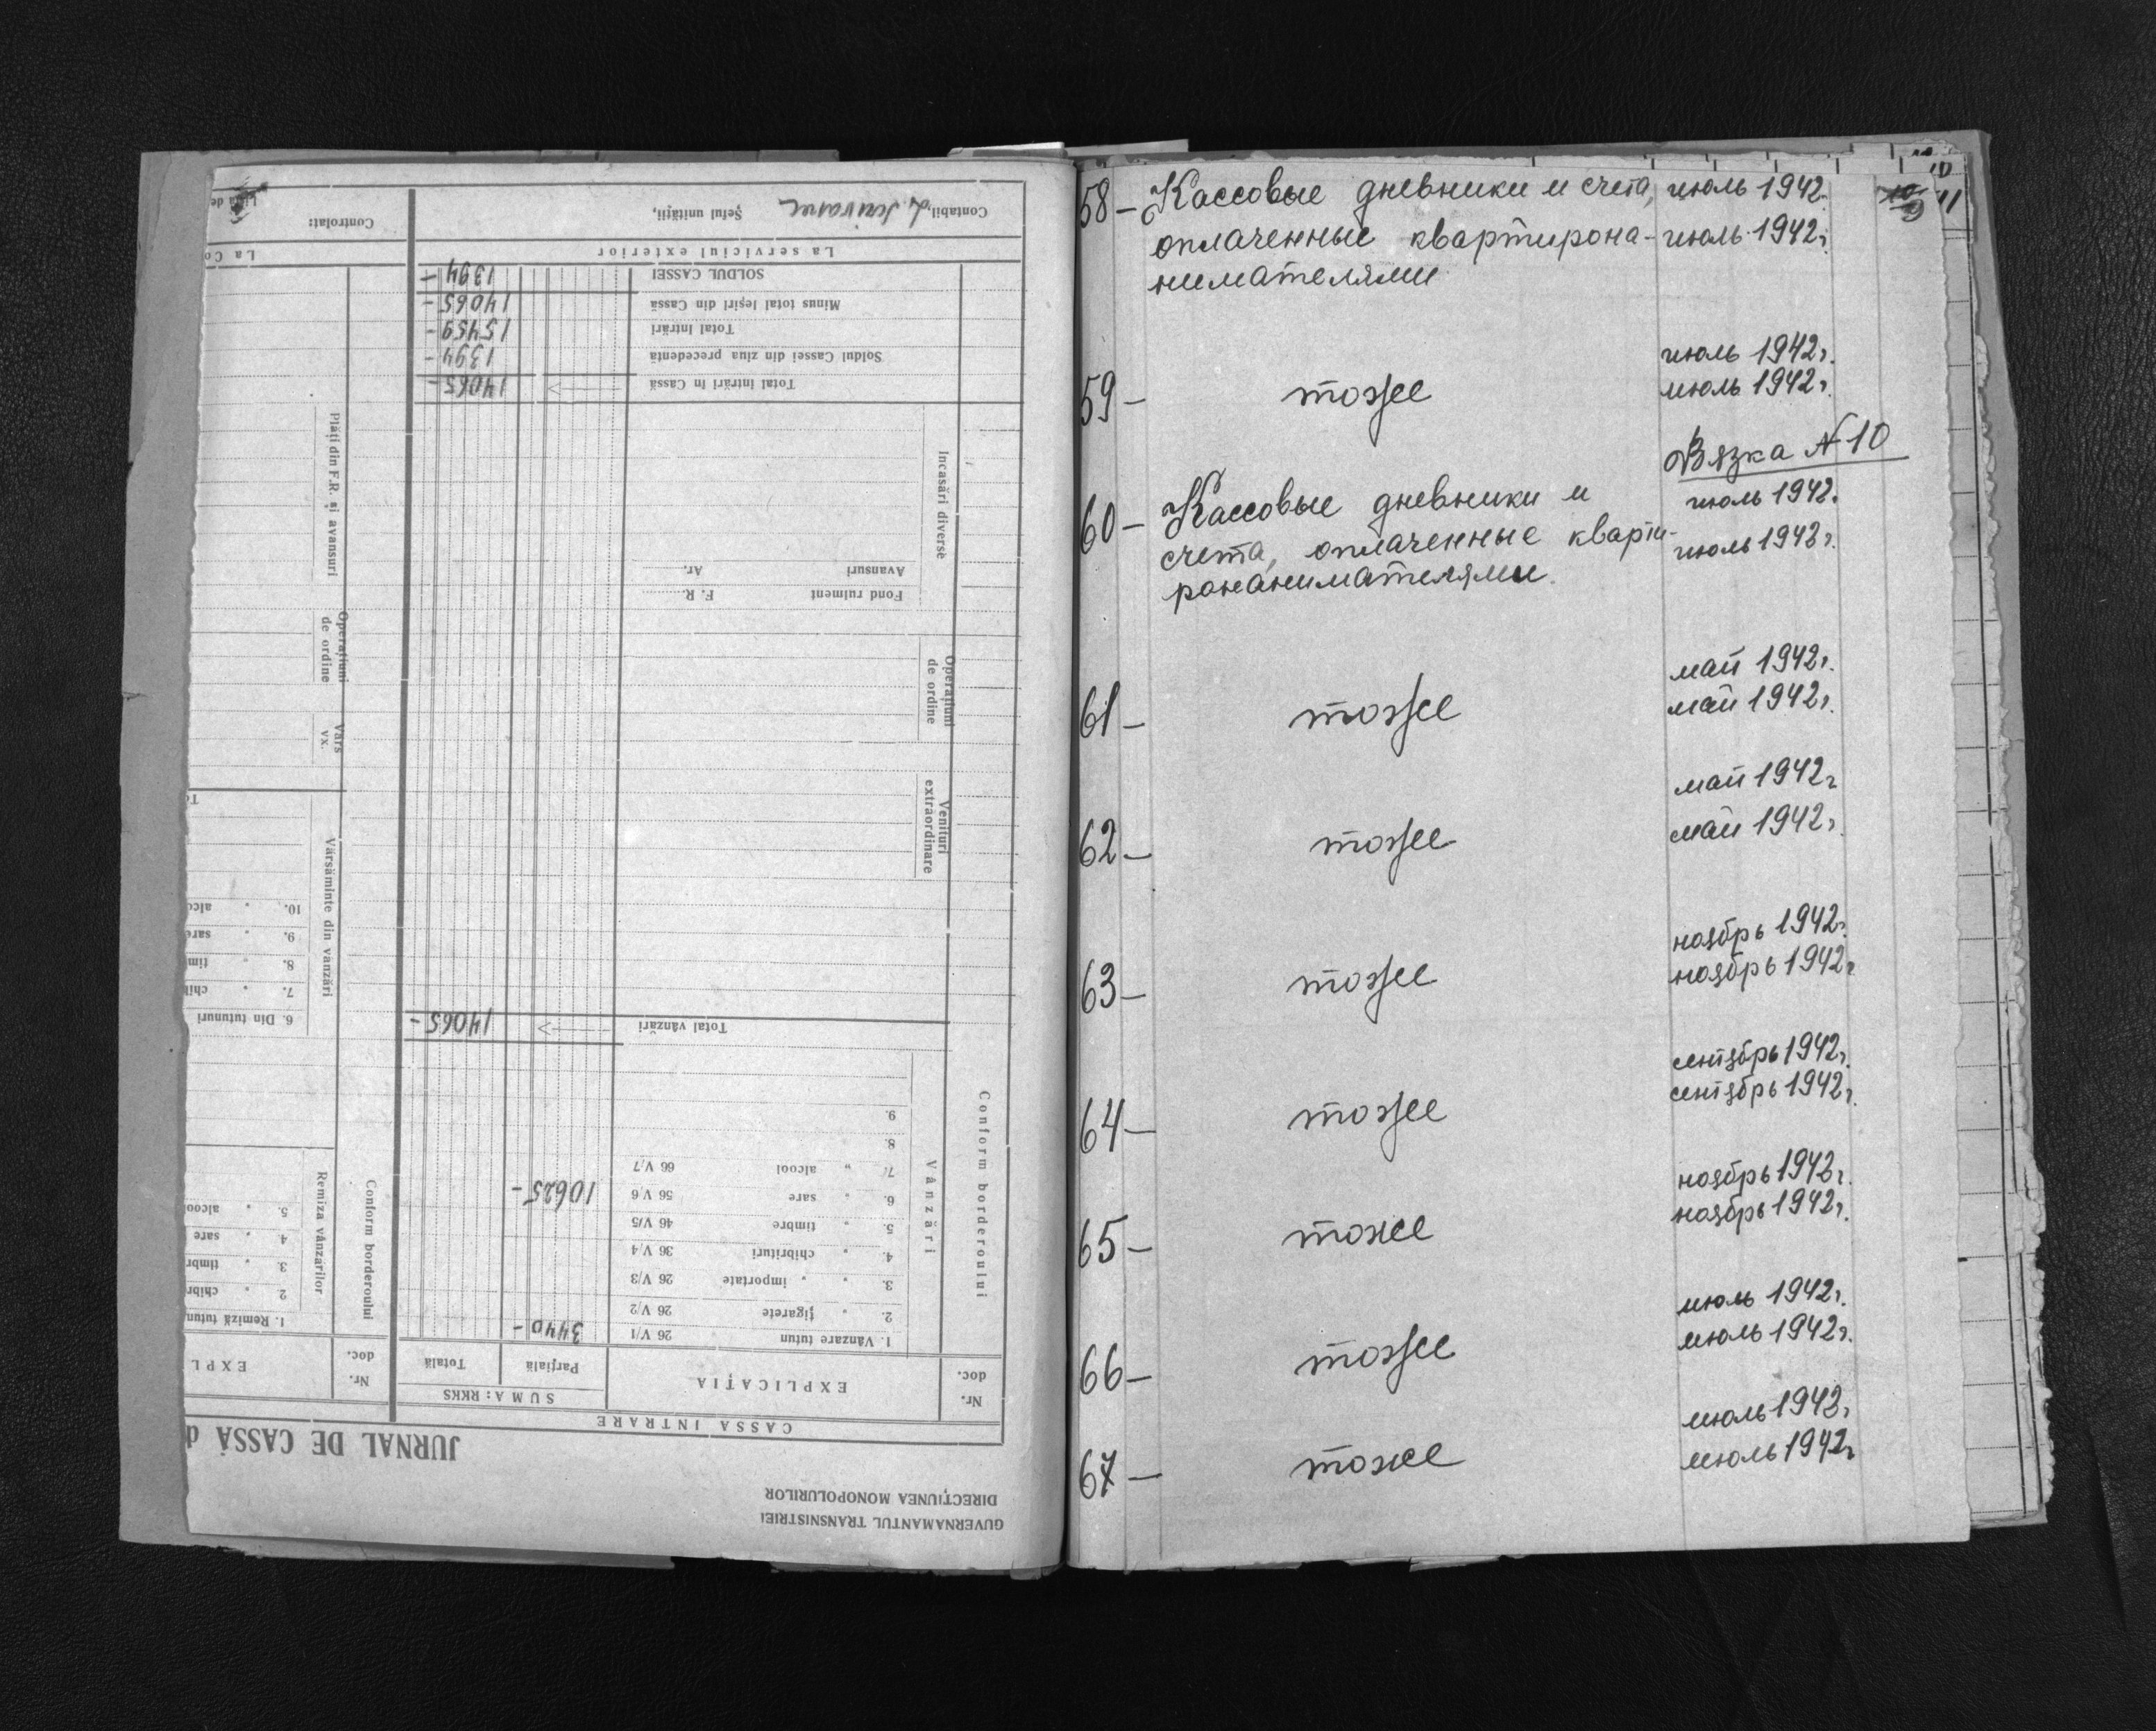 GUVERNAMANTUL TRANSNISTRIEI
DIRECȚIUNEA MONOPOLURILOR
JURNAL DE CASSĂ d
CASSA INTRARE
Nr. doc.
EXPLICAȚIA
SUMA: RKKS
Parțială
Totală
Nr. doc.
EXPL
Conform borderoului
Vânzări
1. Vânzare tutun 26 V/1 3440-
2. " țigarete 26 V/2
3. " " importate 26 V/3
4. " chibrituri 36 V/4
5. " timbre 46 V/5
6. " sare 56 V/6 10625-
7. " alcool 66 V/7
8.
9.
Total vânzări 14065-
Venituri extraordinare
Operațiuni de ordine
Incasări diverse
Fond rulment F. R.
Avansuri Av.
Total intrări în Cassă 14065-
Soldul Cassei din ziua precedentă 1394-
Total Intrări 15459-
Minus total Ieșiri din Cassă 14065-
SOLDUL CASSEI 1394-
La serviciul exterior
Contabil,
Șeful unității,
Conform borderoului
Remiza vânzărilor
1. Remiză tutun
2 " chibr
3. " timbr
4. " sare
5. " alcool
Vărsăminte din vanzări
6. Din tutunuri
7. " chi
8. " tim
9. " sare
10. " alco
Vărs vx.
Operațiuni de ordine
Plăți din F.R. și avansuri
La Co
Controlat:
10
9
11
58 - Кассовые дневники и счета, июль 1942
оплаченные квартирона- июль 1942г
нимателями
июль 1942г.
59 - тоже июль 1942г.
Вязка N 10
60 - Кассовые дневники и июль 1942.
счета, оплаченные кварти- июль 1942г.
ронанимателями.
май 1942г.
61 - тоже май 1942г.
май 1942г
62 - тоже май 1942г.
ноябрь 1942г.
63 - тоже ноябрь 1942г.
сентябрь 1942г.
64 - тоже сентябрь 1942г.
ноябрь 1942г.
65 - тоже ноябрь 1942г.
июль 1942г.
66 - тоже июль 1942г.
июль 1942г
67 - тоже июль 1942г